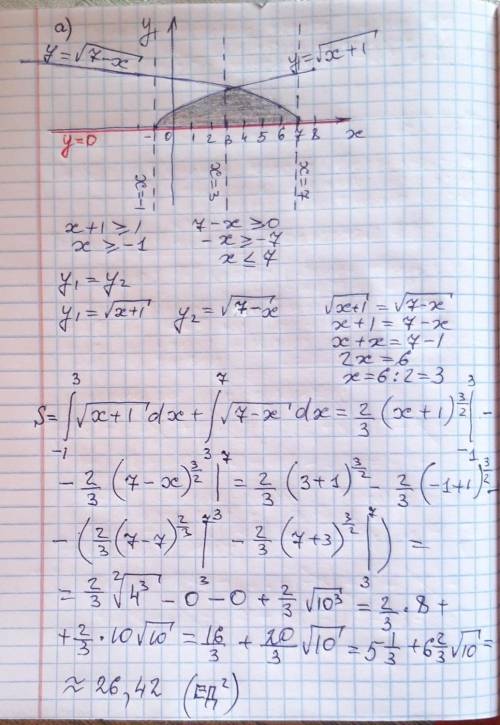 a)
y
y=√(7-x) y=√(x+1)
y=0 -1 0 1 2 3 4 5 6 7 8 x
x=-1 x=3 x=7
x+1≥1 7-x≥0
x≥-1 -x≥-7
x≤7
y₁=y₂
y₁=√(x+1) y₂=√(7-x) √(x+1)=√(7-x)
x+1=7-x
x+x=7-1
2x=6
x=6:2=3
S=∫₋₁³√(x+1)dx+∫₃⁷√(7-x)dx=2/3(x+1)^(3/2)|₋₁³-
-2/3(7-x)^(3/2)|₃⁷=2/3(3+1)^(3/2)-2/3(-1+1)^(3/2)-
-(2/3(7-7)^(2/3)|₃⁷ ³-2/3(7+3)^(3/2)|₃⁷)=
=2/3 ²√(4³)-0-0+2/3√(10³)=2/3·8+
+2/3·10√10=16/3+20/3√10=5 1/3+6 2/3√10=
≈26,42 (ед²)